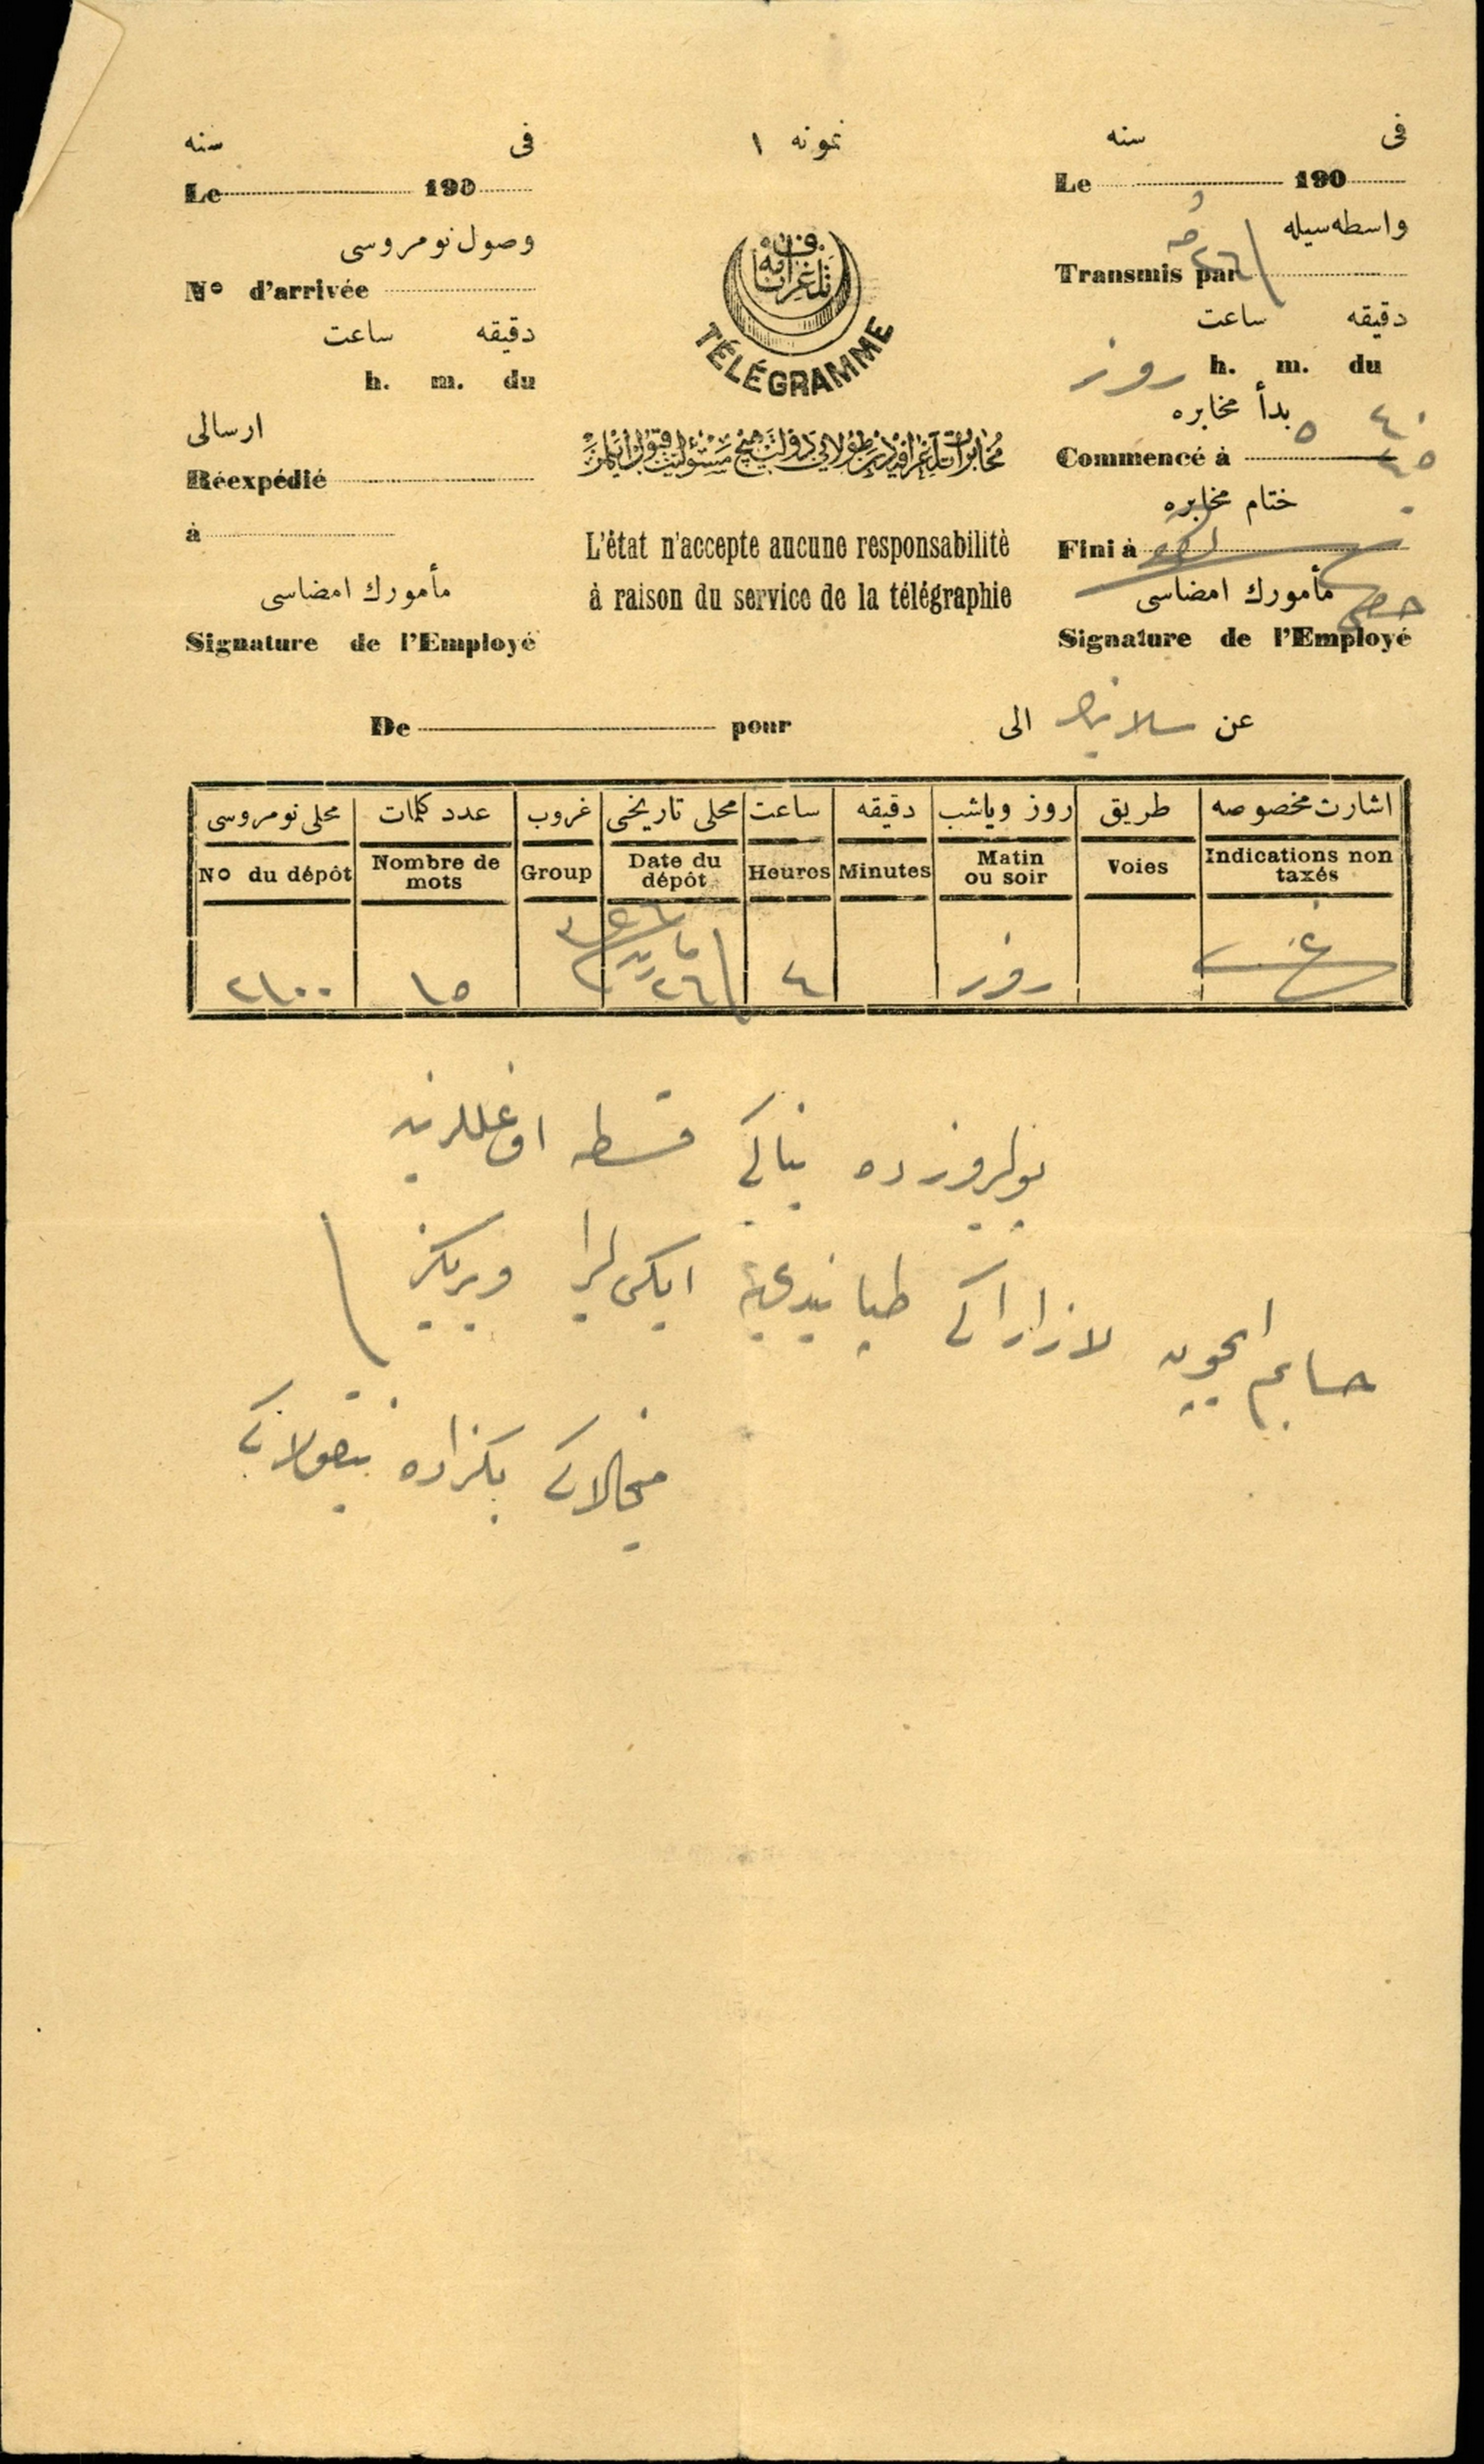 سنه فى نمونه ١ سنه فى
Le 190 Le 190
وصول نومروسى واسطه سيله
No d'arrivée Transmis par ٢٦
دقيقه ساعت دقيقه ساعت
h. m. du h. m. du روز
ارسالى بدأ مخابره
Réexpédié Commencé à
à ختام مخابره
Fini à
مأمورك امضاسى مأمورك امضاسى
Signature de l'Employé Signature de l'Employé
تلغرافنامه
TÉLÉGRAMME
مخابرات تلغرافيه دن طولايى دولت هيچ مسئوليت قبول ايلمز
L'état n'accepte aucune responsabilité
à raison du service de la télégraphie
De pour عن سلانيك الى
اشارت مخصوصه طريق روز وياشب دقيقه ساعت محلى تاريخى غروب عدد كلمات محلى نومروسى
No du dépôt Nombre de mots Group Date du dépôt Heures Minutes Matin ou soir Voies Indications non taxés
روز ٤ ٢٦ ١٥ ٢١٠٠
ده يناكى قسطه اوغللرينه
حسابم ايچون لازاراكى ايكى ليرا ويريكز
ميخالاكى بكزاده نيقولاكى